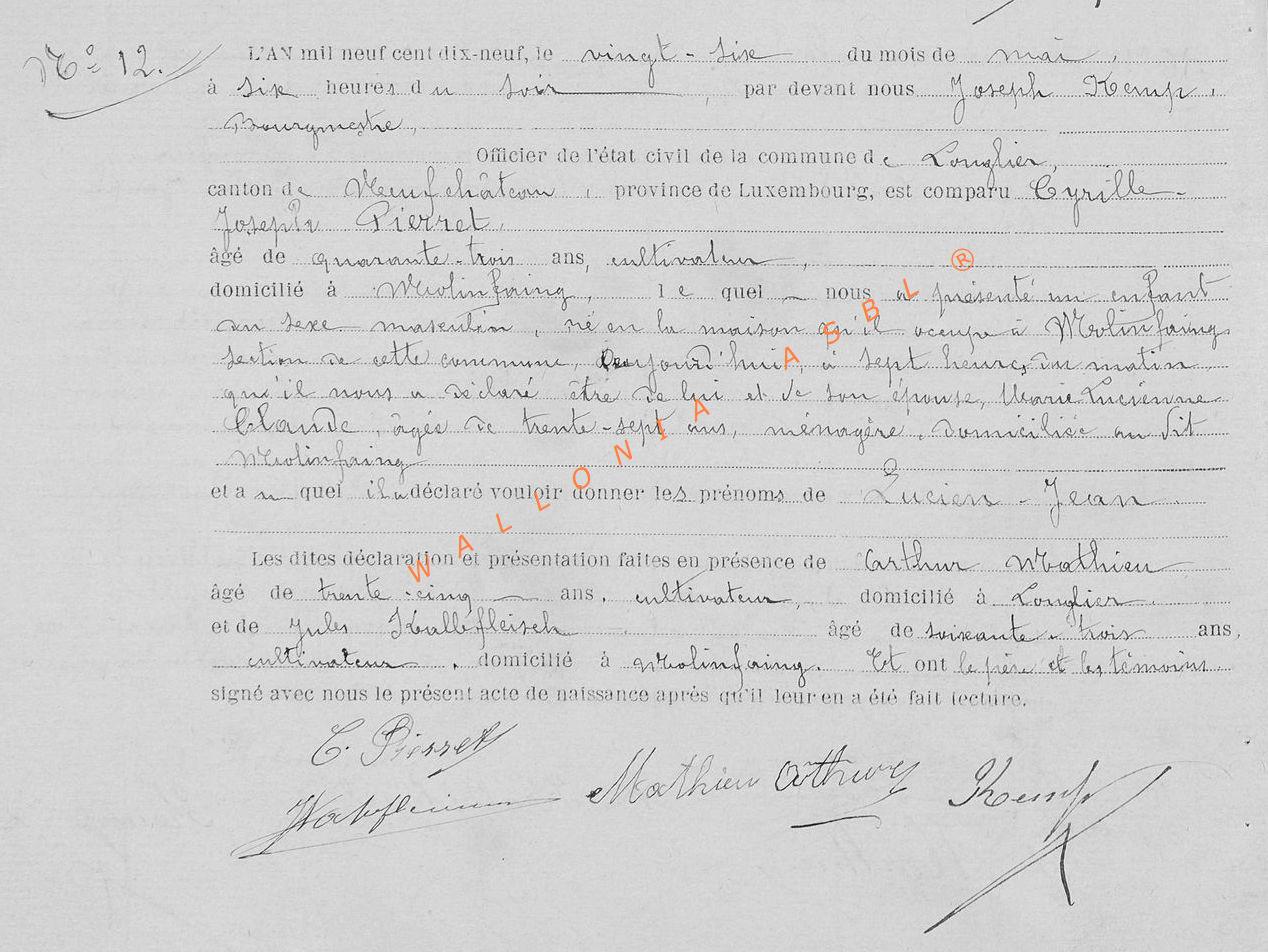 N° 12.
L'AN mil neuf cent dix-neuf, le vingt-six du mois de mai,
à six heures du soir, par devant nous Joseph Kemp,
Bourgmestre,
Officier de l'état civil de la commune de Longlier,
canton de Neufchâteau, province de Luxembourg, est comparu Cyrille-
Joseph Pierret,
âgé de quarante-trois ans, cultivateur,
domicilié à Molinfaing, lequel nous a présenté un enfant
du sexe masculin, né en la maison qu'il occupe à Molinfaing
section de cette commune, aujourd'hui, à sept heures du matin,
qu'il nous a déclaré être de lui et de son épouse, Marie-Lucienne
Claude, âgée de trente-sept ans, ménagère, domiciliée au dit
Molinfaing
et auquel il a déclaré vouloir donner les prénoms de Lucien-Jean
Les dites déclaration et présentation faites en présence de Arthur Mathieu
âgé de trente-cinq ans, cultivateur, domicilié à Longlier
et de Jules Kalbfleisch âgé de soixante-trois ans,
cultivateur, domicilié à Molinfaing. Et ont le père et les témoins
signé avec nous le présent acte de naissance après qu'il leur en a été fait lecture.
C. Pierret
Mathieu Arthur Kemp
WALLONIA ASBL ®